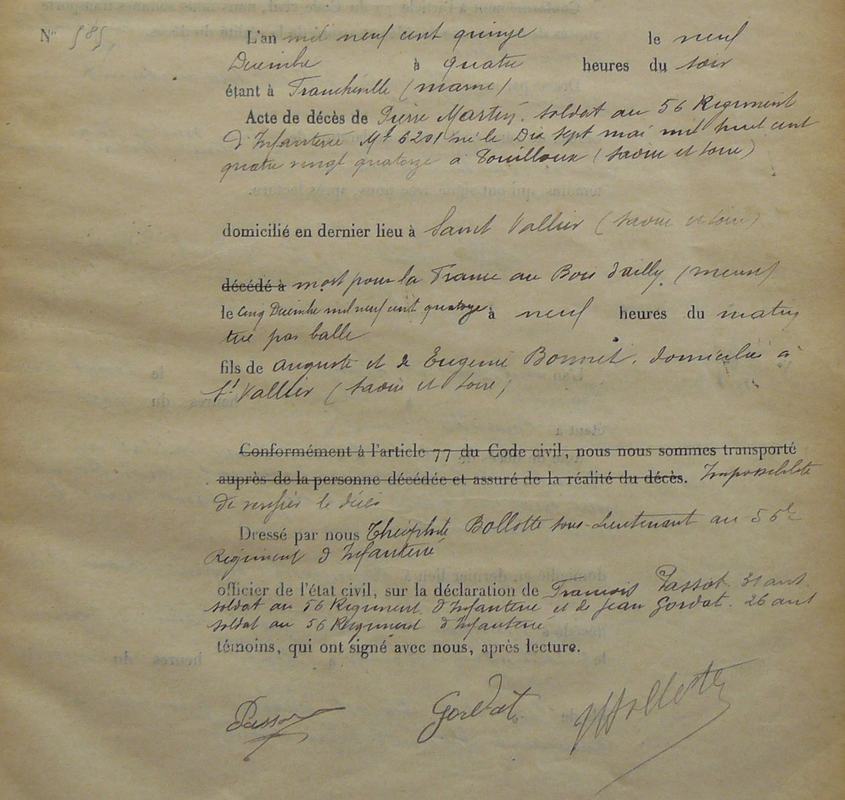 N° 585
L'an mil neuf cent quinze le neuf
Décembre à quatre heures du soir
étant à (marne)
Acte de décès de Pierre Martin, soldat au 56 Régiment
d'Infanterie Mle 6201 né le Dix sept mai mil huit cent
quatre vingt quatorze à Touilloux (Saône et Loire)
domicilié en dernier lieu à Saint Vallier (Saône et Loire)
décédé à mort pour la France au Bois d'ailly (meuse)
le cinq Décembre mil neuf cent quatorze à neuf heures du matin
tué par balle
fils de Auguste et de Eugénie Bonnet, domiciliés à
St Vallier (Saône et Loire)
Conformément à l'article 77 du Code civil, nous nous sommes transporté
auprès de la personne décédée et assuré de la réalité du décès. Impossibilité
de vérifier le décès
Dressé par nous Théophile Bollotte sous-Lieutenant au 56e
Régiment d'Infanterie
officier de l'état civil, sur la déclaration de François Passot 31 ans
soldat au 56 Régiment d'Infanterie et de Jean Gordat. 26 ans
soldat au 56 Régiment d'Infanterie
témoins, qui ont signé avec nous, après lecture.
Passot Gordat Bollotte